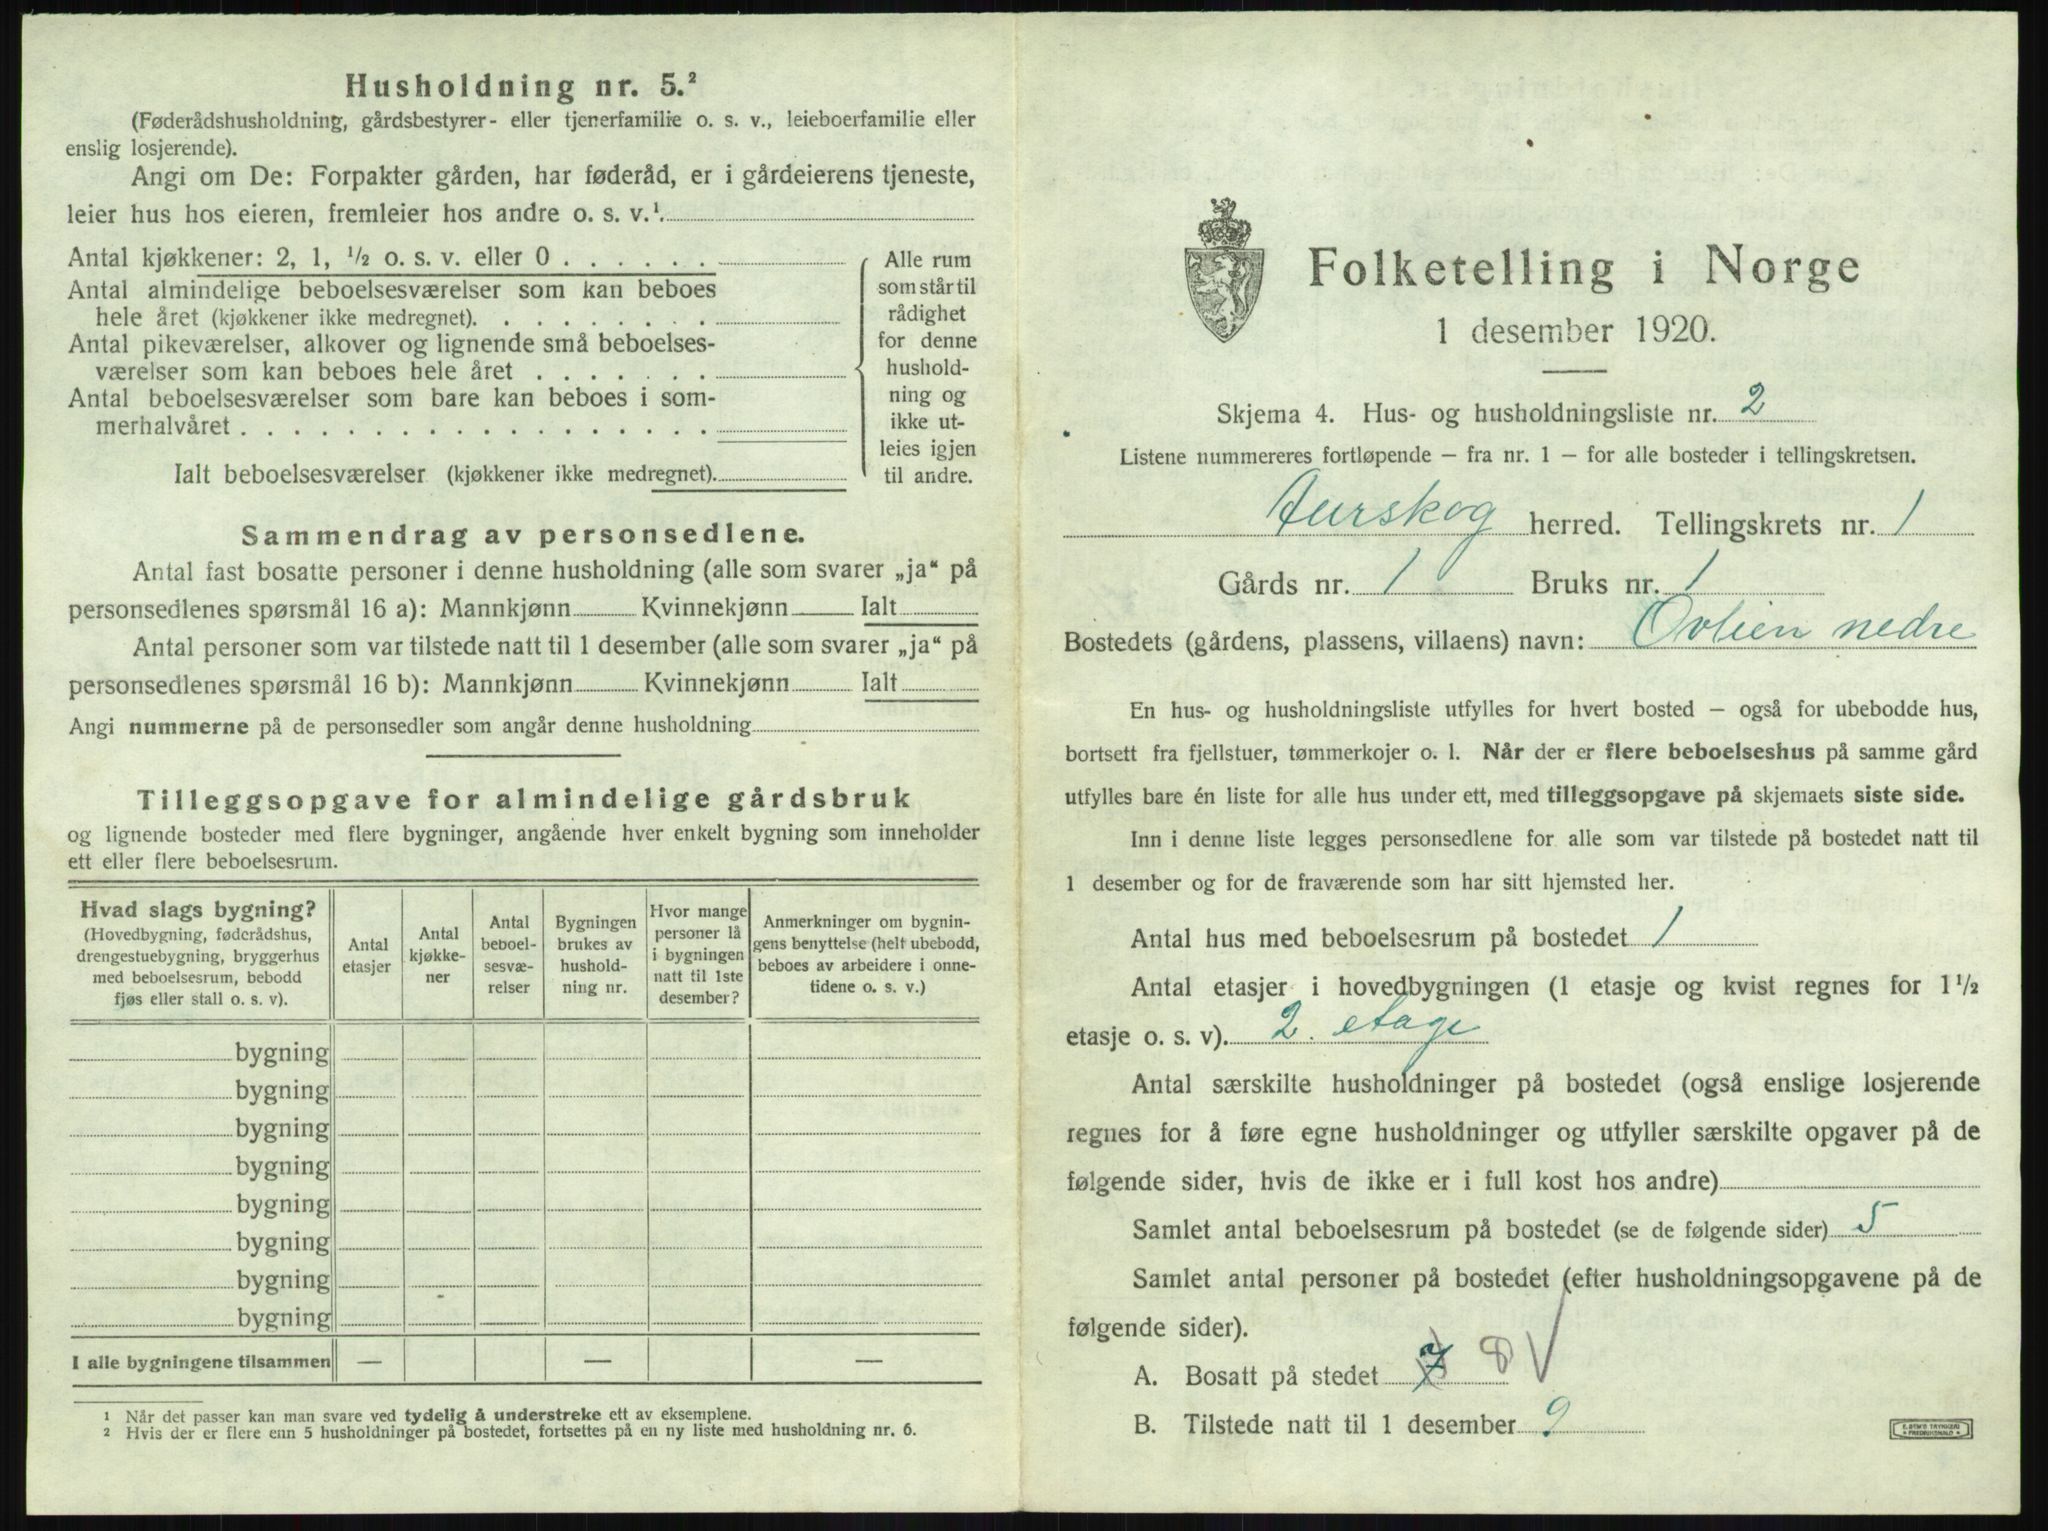 Husholdning nr. 5.²
(Føderådshusholdning, gårdsbestyrer- eller tjenerfamilie o. s. v., leieboerfamilie eller
enslig losjerende).
Angi om De: Forpakter gården, har føderåd, er i gårdeierens tjeneste,
leier hus hos eieren, fremleier hos andre o. s. v.¹.
Antal kjøkkener: 2, 1, ½ o. s. v. eller 0 . . . . . .
Antal almindelige beboelsesværelser som kan beboes
hele året (kjøkkener ikke medregnet). . . . . . . .
Antal pikeværelser, alkover og lignende små beboelses-
værelser som kan beboes hele året . . . . . . .
Antal beboelsesværelser som bare kan beboes i som-
merhalvåret . . . . . . . . . . . . . . . . . .
Ialt beboelsesværelser (kjøkkener ikke medregnet).
Alle rum
som står til
rådighet
for denne
hushold-
ning og
ikke ut-
leies igjen
til andre.
Sammendrag av personsedlene.
Antal fast bosatte personer i denne husholdning (alle som svarer „ja“ på
personsedlenes spørsmål 16 a): Mannkjønn Kvinnekjønn Ialt
Antal personer som var tilstede natt til 1 desember (alle som svarer „ja“ på
personsedlenes spørsmål 16 b): Mannkjønn Kvinnekjønn Ialt
Angi nummerne på de personsedler som angår denne husholdning
Tilleggsopgave for almindelige gårdsbruk
og lignende bosteder med flere bygninger, angående hver enkelt bygning som inneholder
ett eller flere beboelsesrum.
Hvad slags bygning?
(Hovedbygning, føderådshus,
drengestuebygning, bryggerhus
med beboelsesrum, bebodd
fjøs eller stall o. s. v).
Antal
etasjer
Antal
kjøkke-
ner
Antal
beboel-
sesvæ-
relser
Bygningen
brukes av
hushold-
ning nr.
Hvor mange
personer lå
i bygningen
natt til 1ste
desember?
Anmerkninger om bygnin-
gens benyttelse (helt ubebodd,
beboes av arbeidere i onne-
tidene o. s. v.)
bygning
bygning
bygning
bygning
bygning
bygning
bygning
bygning
I alle bygningene tilsammen — — —
¹ Når det passer kan man svare ved tydelig å understreke ett av eksemplene.
² Hvis der er flere enn 5 husholdninger på bostedet, fortsettes på en ny liste med husholdning nr. 6.
Folketelling i Norge
1 desember 1920.
Skjema 4. Hus- og husholdningsliste nr. 2
Listene nummereres fortløpende – fra nr. 1 – for alle bosteder i tellingskretsen.
Aurskog herred. Tellingskrets nr. 1
Gårds nr. 1 Bruks nr. 1
Bostedets (gårdens, plassens, villaens) navn: Ovlien nedre
En hus- og husholdningsliste utfylles for hvert bosted – også for ubebodde hus,
bortsett fra fjellstuer, tømmerkojer o. l. Når der er flere beboelseshus på samme gård
utfylles bare én liste for alle hus under ett, med tilleggsopgave på skjemaets siste side.
Inn i denne liste legges personsedlene for alle som var tilstede på bostedet natt til
1 desember og for de fraværende som har sitt hjemsted her.
Antal hus med beboelsesrum på bostedet 1
Antal etasjer i hovedbygningen (1 etasje og kvist regnes for 1½
etasje o. s. v). 2. etage
Antal særskilte husholdninger på bostedet (også enslige losjerende
regnes for å føre egne husholdninger og utfyller særskilte opgaver på de
følgende sider, hvis de ikke er i full kost hos andre)
Samlet antal beboelsesrum på bostedet (se de følgende sider) 5
Samlet antal personer på bostedet (efter husholdningsopgavene på de
følgende sider).
A. Bosatt på stedet 7 8 V
B. Tilstede natt til 1 desember 9